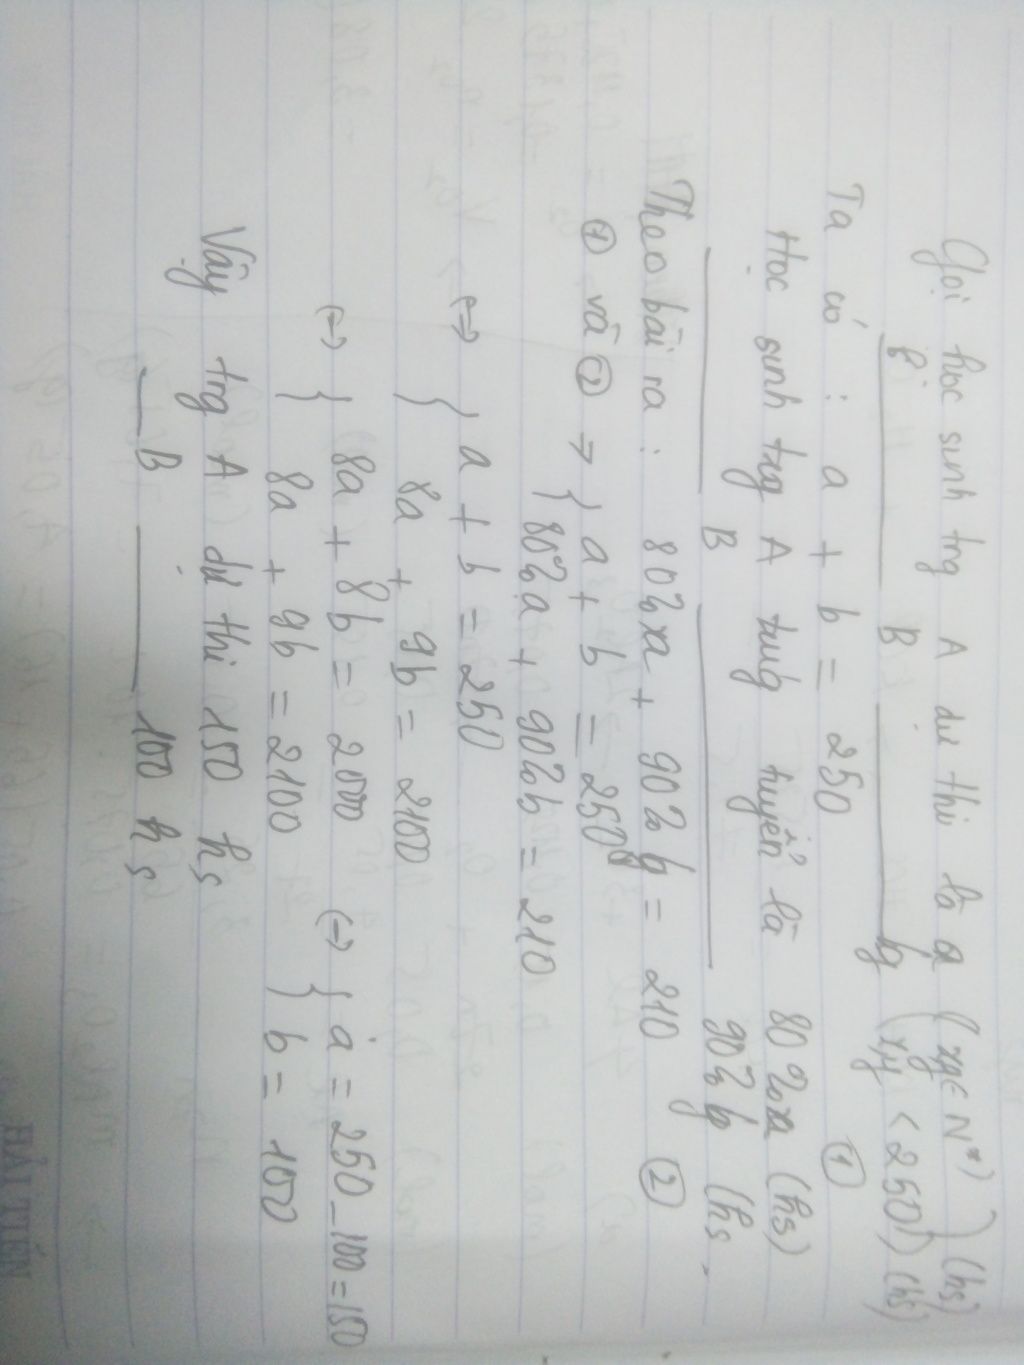 Gọi học sinh trg A dự thi là a (x,y ∈ N*) } (hs)
B b (x,y < 250) } (hs)
Ta có : a + b = 250 ①
Học sinh trg A trung tuyển là 80%xa (hs)
B 90% b (hs,
Theo bài ra : 80%xa + 90% b = 210 ②
① và ② → { a + b = 250
{ 80%a + 90%b = 210
(=) { a + b = 250
{ 8a + 9b = 2100
(=) { 8a + 8b = 2000 (=) { a = 250 - 100 = 150
{ 8a + 9b = 2100 { b = 100
Vậy trg A dự thi 150 hs
B 100 hs
HẢI TIẾN